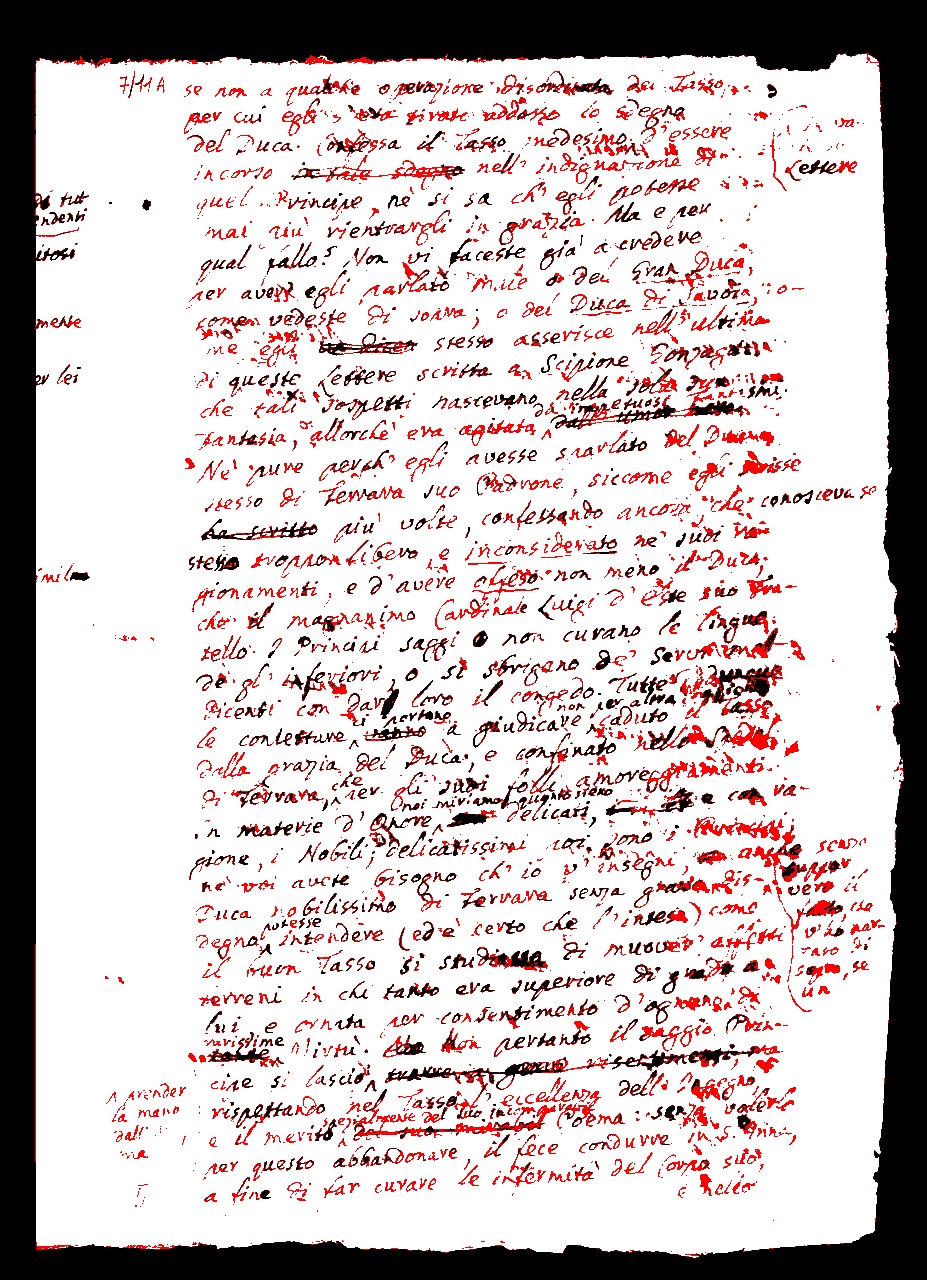 7/11A
se non a qualche operazione disordinata del Tasso,
per cui egli s'era tirato addosso lo sdegno
del Duca. Confessa il Tasso medesimo d'essere
incorso in tale sdegno nell' indignazione di
quel Principe, nè si sa ch'egli potesse
mai più rientrargli in grazia. Ma e per
qual fallo? Non vi faceste già a credere
per aver egli parlato male o del Gran Duca,
come vedeste di sopra; o del Duca di Savoia,
egli stesso asserisce nell' ultima
di queste Lettere scritta a Scipione Gonzaga
che tali sospetti nascevano nella sola sua
fantasia, allorchè era agitata da impetuosi fantasmi.
Nè pure perch' egli avesse sparlato del Duca
stesso di Ferrara suo Padrone, siccome egli scrisse
ha scritto più volte, confessando ancora, che conosceva se
stesso troppo libero, e inconsiderato ne' suoi ra-
gionamenti, e d'avere offeso non meno il Duca,
che il magnanimo Cardinale Luigi d'Este suo Fra-
tello. I Principi saggi o non curano le lingue
de gl' inferiori, o si sbrigano de' Servi
dicenti con dar loro il congedo. Tutte dunque
le conietture ci portano a giudicare non per altra caduto il Tasso
dalla grazia del Duca, e confinato nello Spedal
di Ferrara, che per gli suoi folli amoreggiamenti.
In materie d'Onore noi miriamo quanto sieno delicati, e con ra-
gione, i Nobili; delicatissimi poi sono i Principi,
nè voi avete bisogno ch'io v'insegni,
Duca nobilissimo di Ferrara senza grave dis-
degno potesse intendere (ed è certo che l'intese) come
il buon Tasso si studiassa di muover affetti
terreni in chi tanto era superiore di grado a
lui e ornata per consentimento d'ognuno di
rarissime Virtù. Non pertanto il saggio Prin-
cipe si lasciò
rispettando nel Tasso l'eccellenza dell' Ingegno,
e il merito specialmente del suo incomparabile Poema: senza volerlo
per questo abbandonare, il fece condurre in S. Anna,
a fine di far curare le infermità del Corpo suo,
e nello
Lettere
di tut
endenti
itosi
mente
er lei
imile
senza
saper
vero il
fatto, che
v'ho nar-
rato di
sopra, se
un
a prender
la mano
dall'
ma